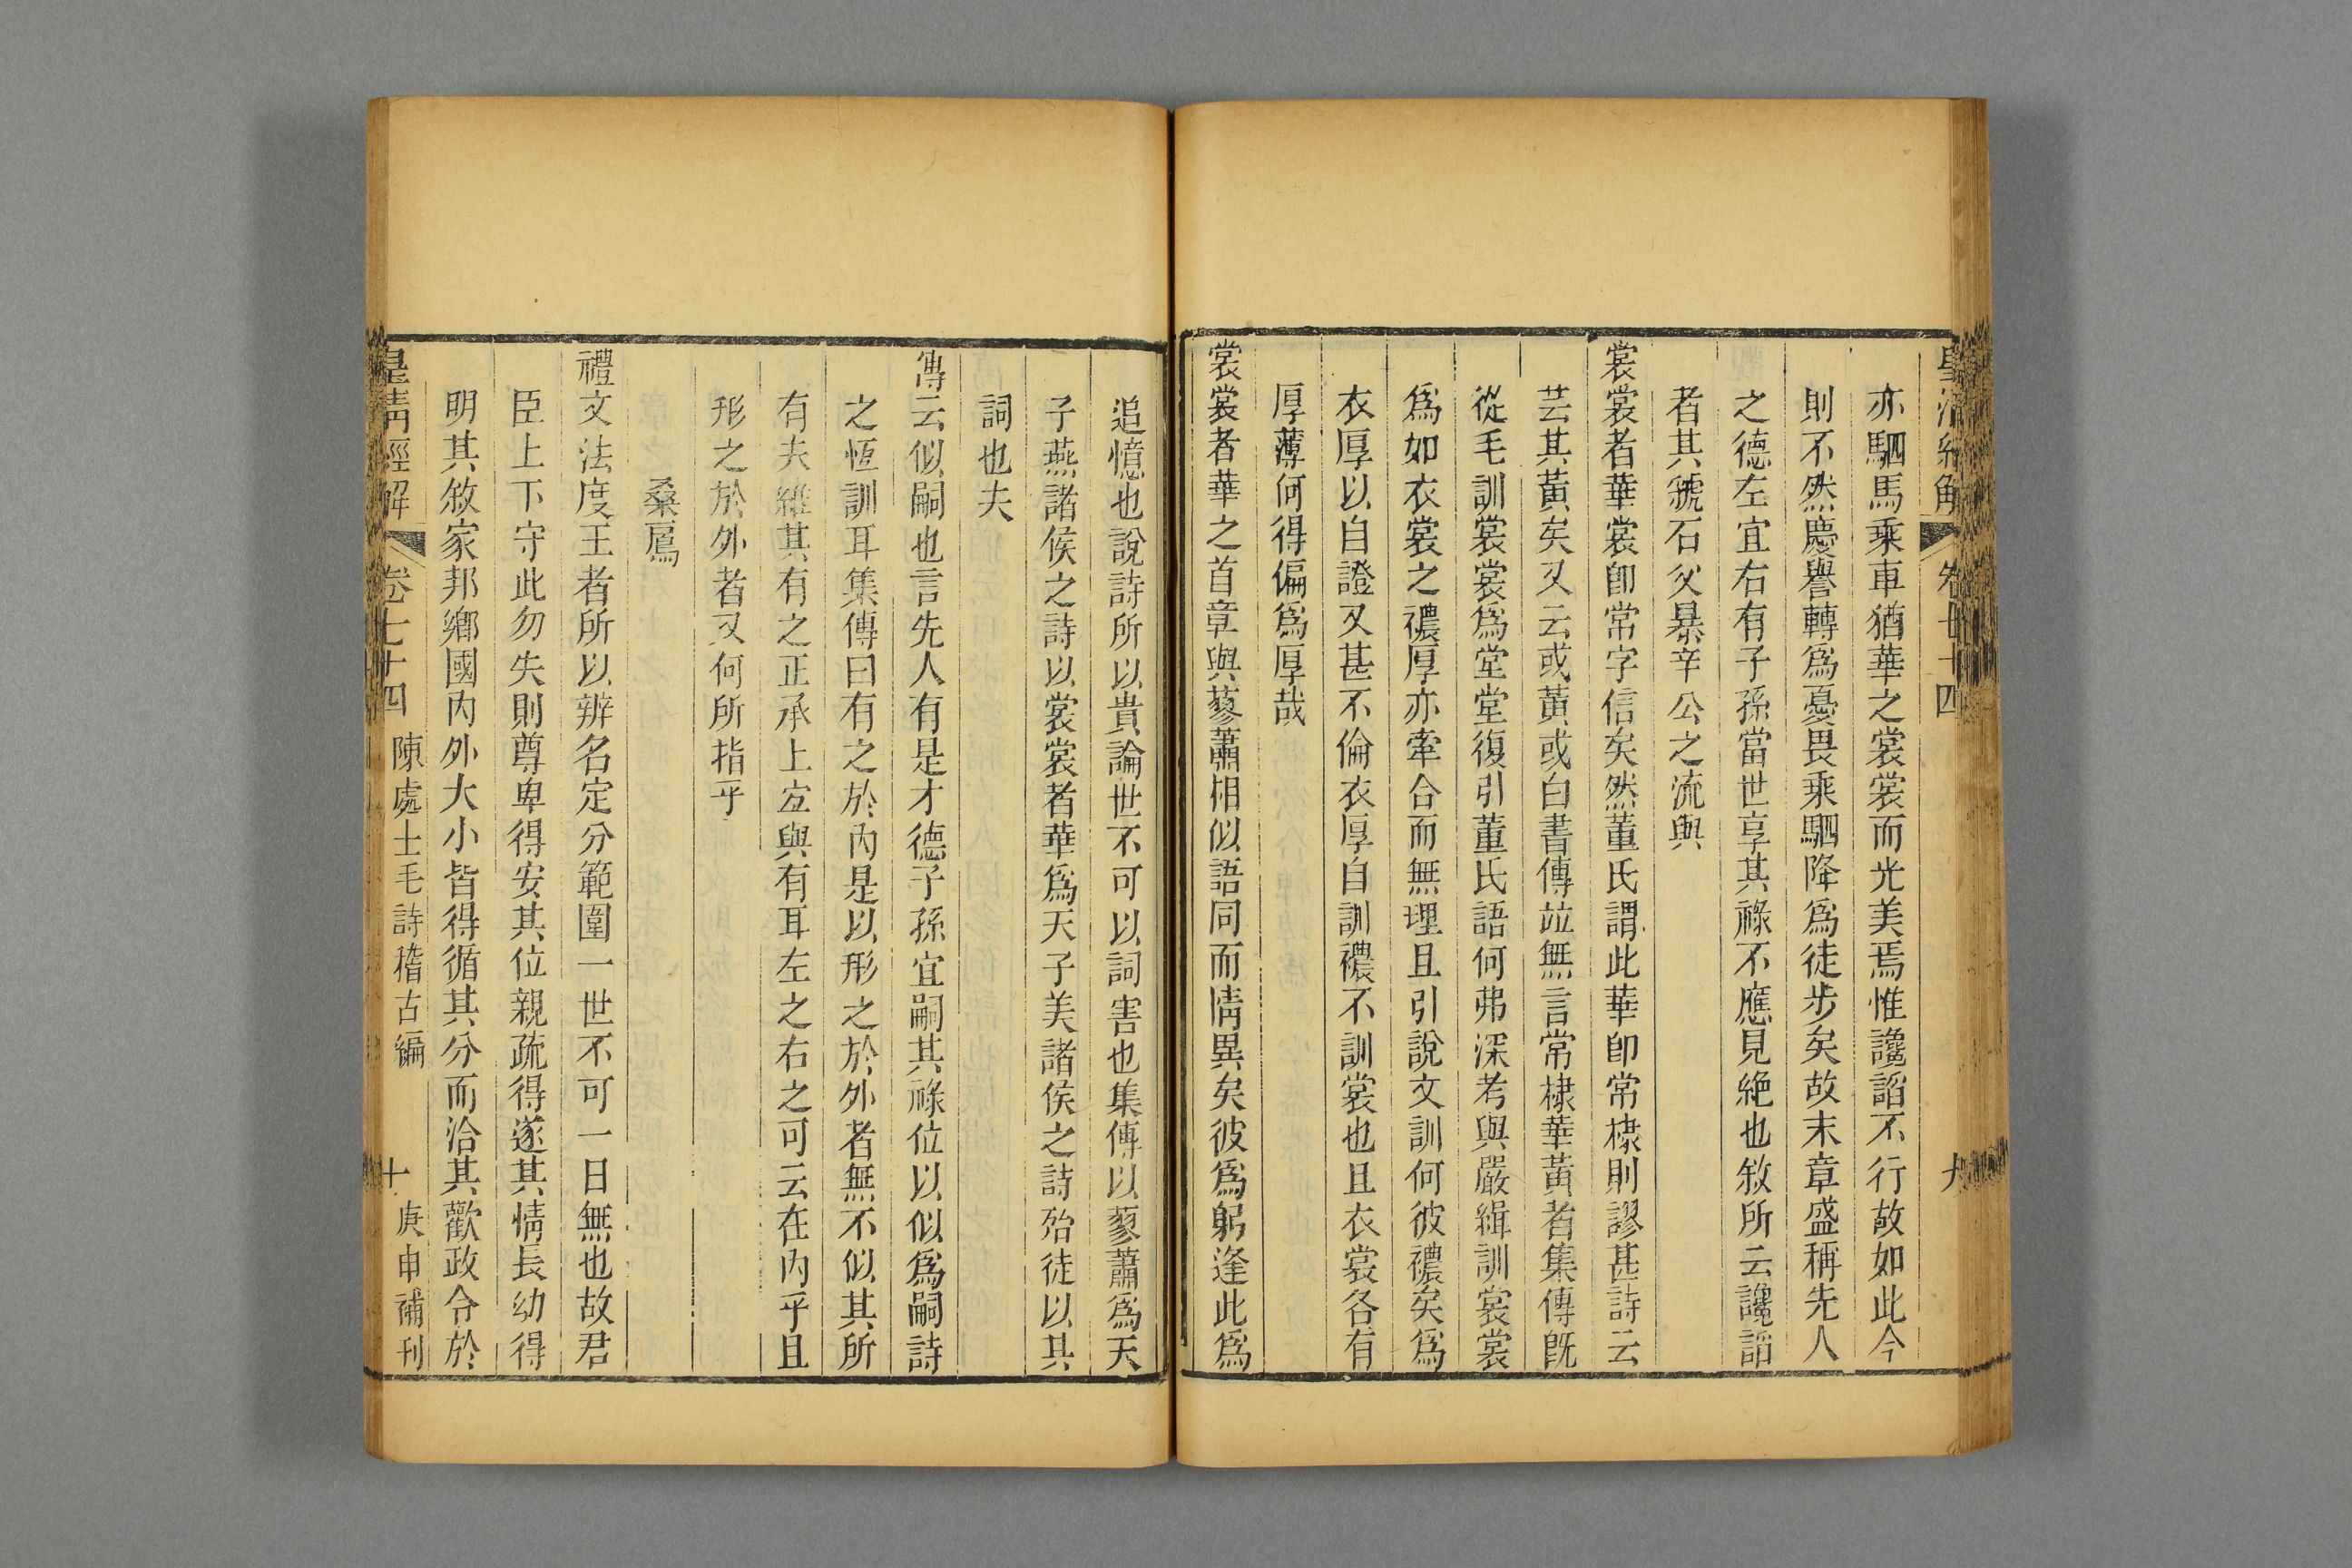 皇清經解 卷七十四 九
亦駟馬乘車猶華之裳裳而光美焉惟讒諂不行故如此今
則不然慶譽轉爲憂畏乘駟降爲徒步矣故末章盛稱先人
之德左宜右有子孫當世享其祿不應見絶也敘所云讒諂
者其虢石父暴辛公之流與
裳裳者華裳卽常字信矣然董氏謂此華卽常棣則謬甚詩云
芸其黃矣又云或黃或白書傳竝無言常棣華黃者集傳旣
從毛訓裳裳爲堂堂復引董氏語何弗深考與嚴緝訓裳裳
爲如衣裳之襛厚亦牽合而無理且引說文訓何彼襛矣爲
衣厚以自證又甚不倫衣厚自訓襛不訓裳也且衣裳各有
厚薄何得偏爲厚哉
裳裳者華之首章與蓼蕭相似語同而情異矣彼爲躬逢此爲
追憶也說詩所以貴論世不可以詞害也集傳以蓼蕭爲天
子燕諸侯之詩以裳裳者華爲天子美諸侯之詩殆徒以其
詞也夫
傳云似嗣也言先人有是才德子孫宜嗣其祿位以似爲嗣詩
之恆訓耳集傳曰有之於內是以形之於外者無不似其所
有夫維其有之正承上宜與有耳左之右之可云在內乎且
形之於外者又何所指乎
桑扈
禮文法度王者所以辨名定分範圍一世不可一日無也故君
臣上下守此勿失則尊卑得安其位親疏得遂其情長幼得
明其敘家邦鄉國內外大小皆得循其分而洽其歡政令於
皇清經解 卷七十四 陳處士毛詩稽古編 十 庚申補刊